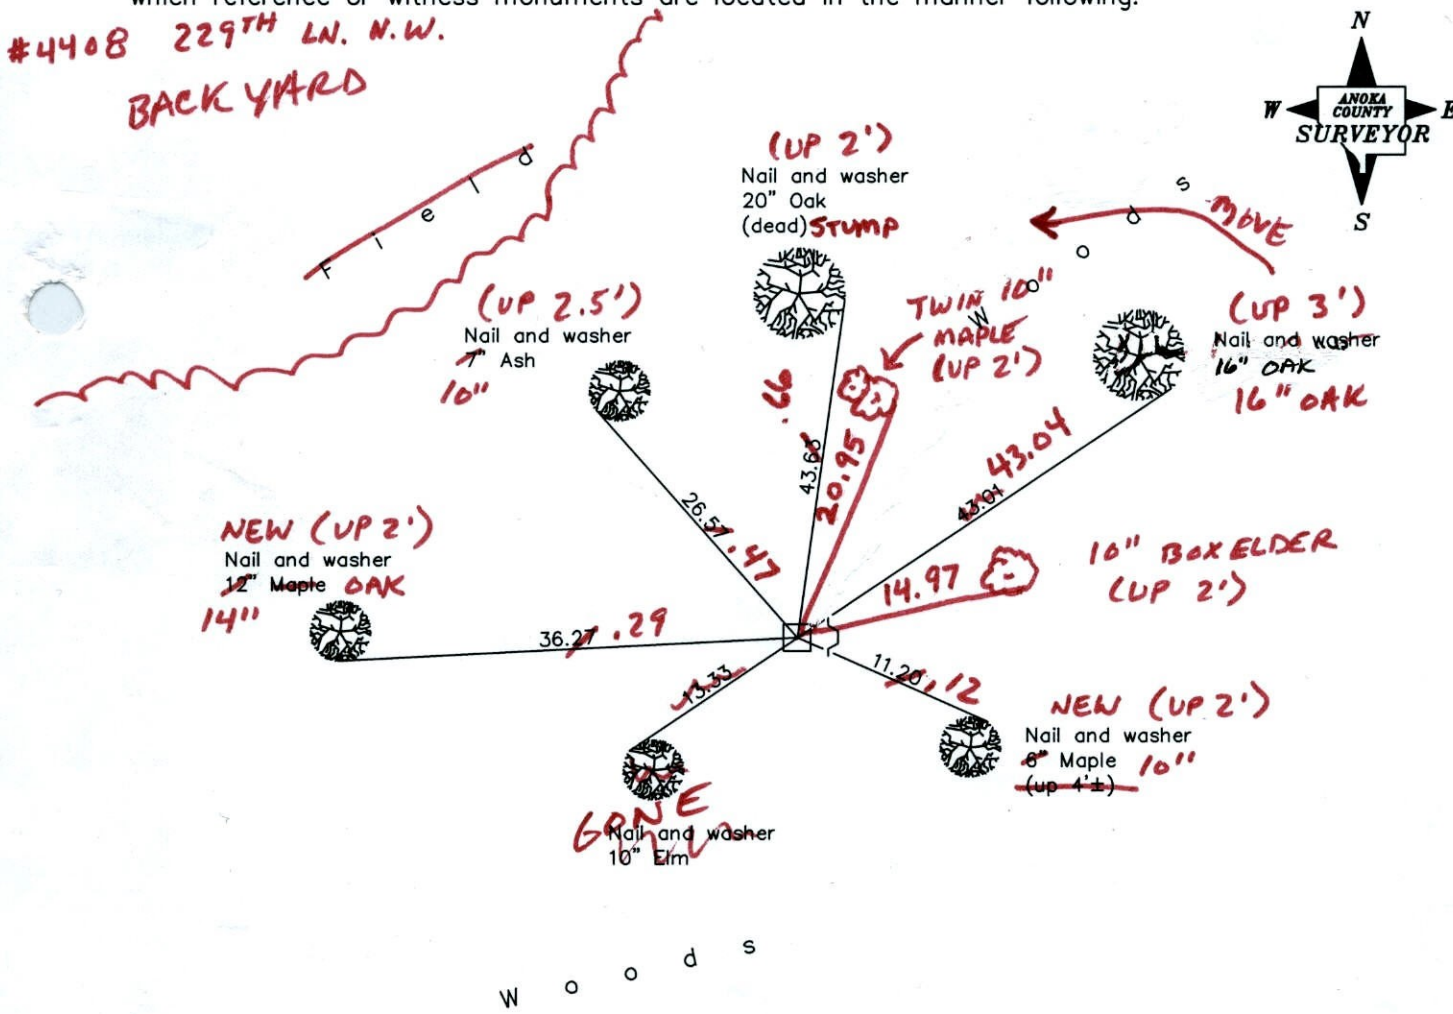 which reference or witness monuments are located in the manner following:
#4408 229TH LN. N.W.
BACK YARD
N
W
E
S
ANOKA
COUNTY
SURVEYOR
Field
(UP 2')
Nail and washer
20" Oak
(dead) STUMP
Woods
MOVE
(UP 2.5')
Nail and washer
7" Ash
10"
TWIN 10"
MAPLE
(UP 2')
(UP 3')
Nail and washer
16" OAK
16" OAK
.66
43.63
20.95
43.04
43.01
26.57 .47
NEW (UP 2')
Nail and washer
12" Maple OAK
14"
10" BOX ELDER
(UP 2')
14.97
36.27 .29
13.33
11.20 .12
NEW (UP 2')
Nail and washer
6" Maple 10"
(up 4'±)
GONE
Nail and washer
10" Elm
Woods